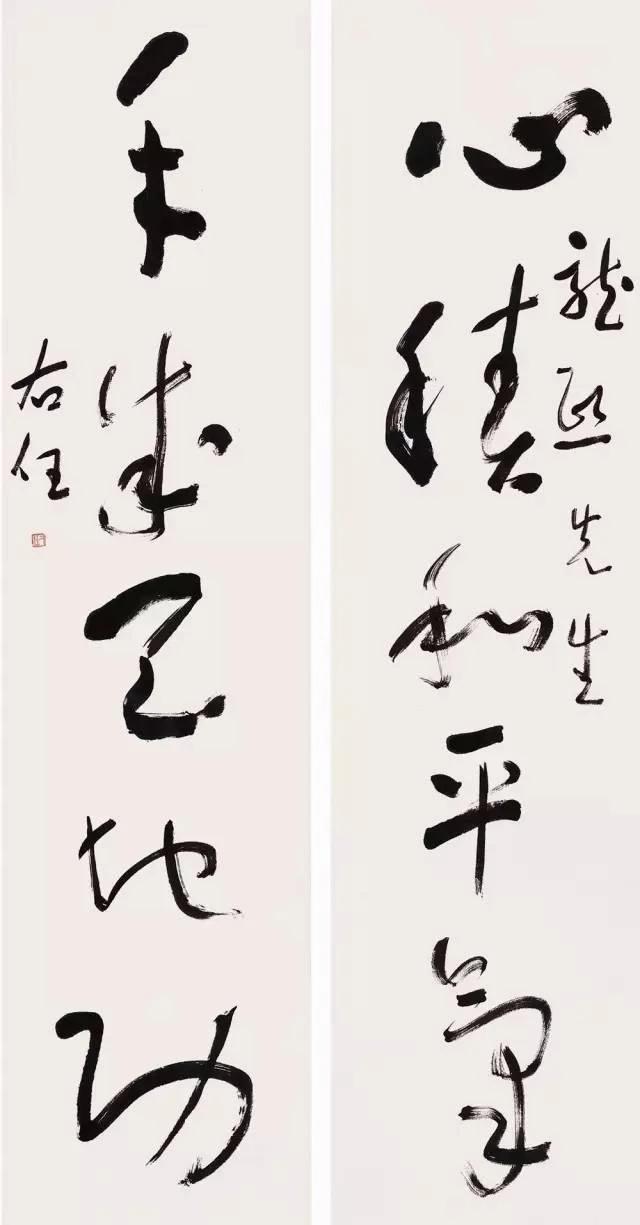 心積和平氣
龍熙先生
手成天地功
右任